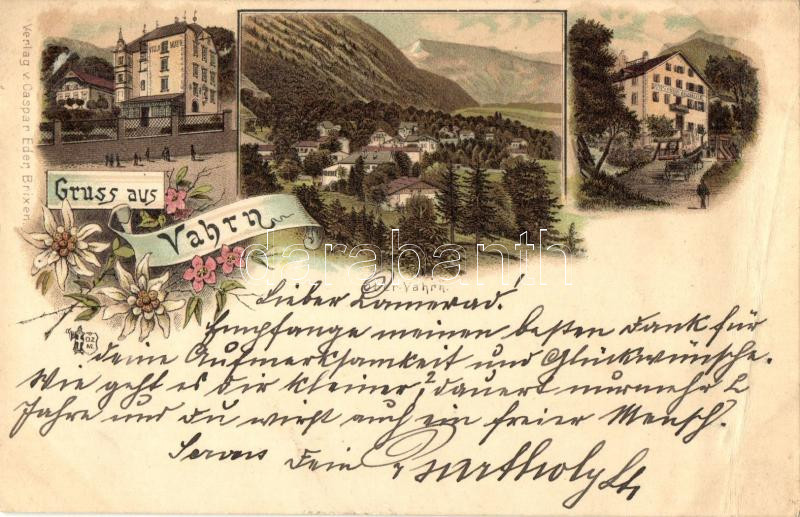 Verlag v. Caspar Eder, Brixen.
VILLA MAYR
Gruss aus
Vahrn
Ober-Vahrn.
darabanth
O.Z.
M.
Lieber Kamerad!
Empfange meinen besten Dank für
deine Aufmerksamkeit und Glückwünsche.
Wie geht es dir kleiner? dauert nurmehr 2
Jahre und du wirst auch ein freier Mensch.
Servus Dein